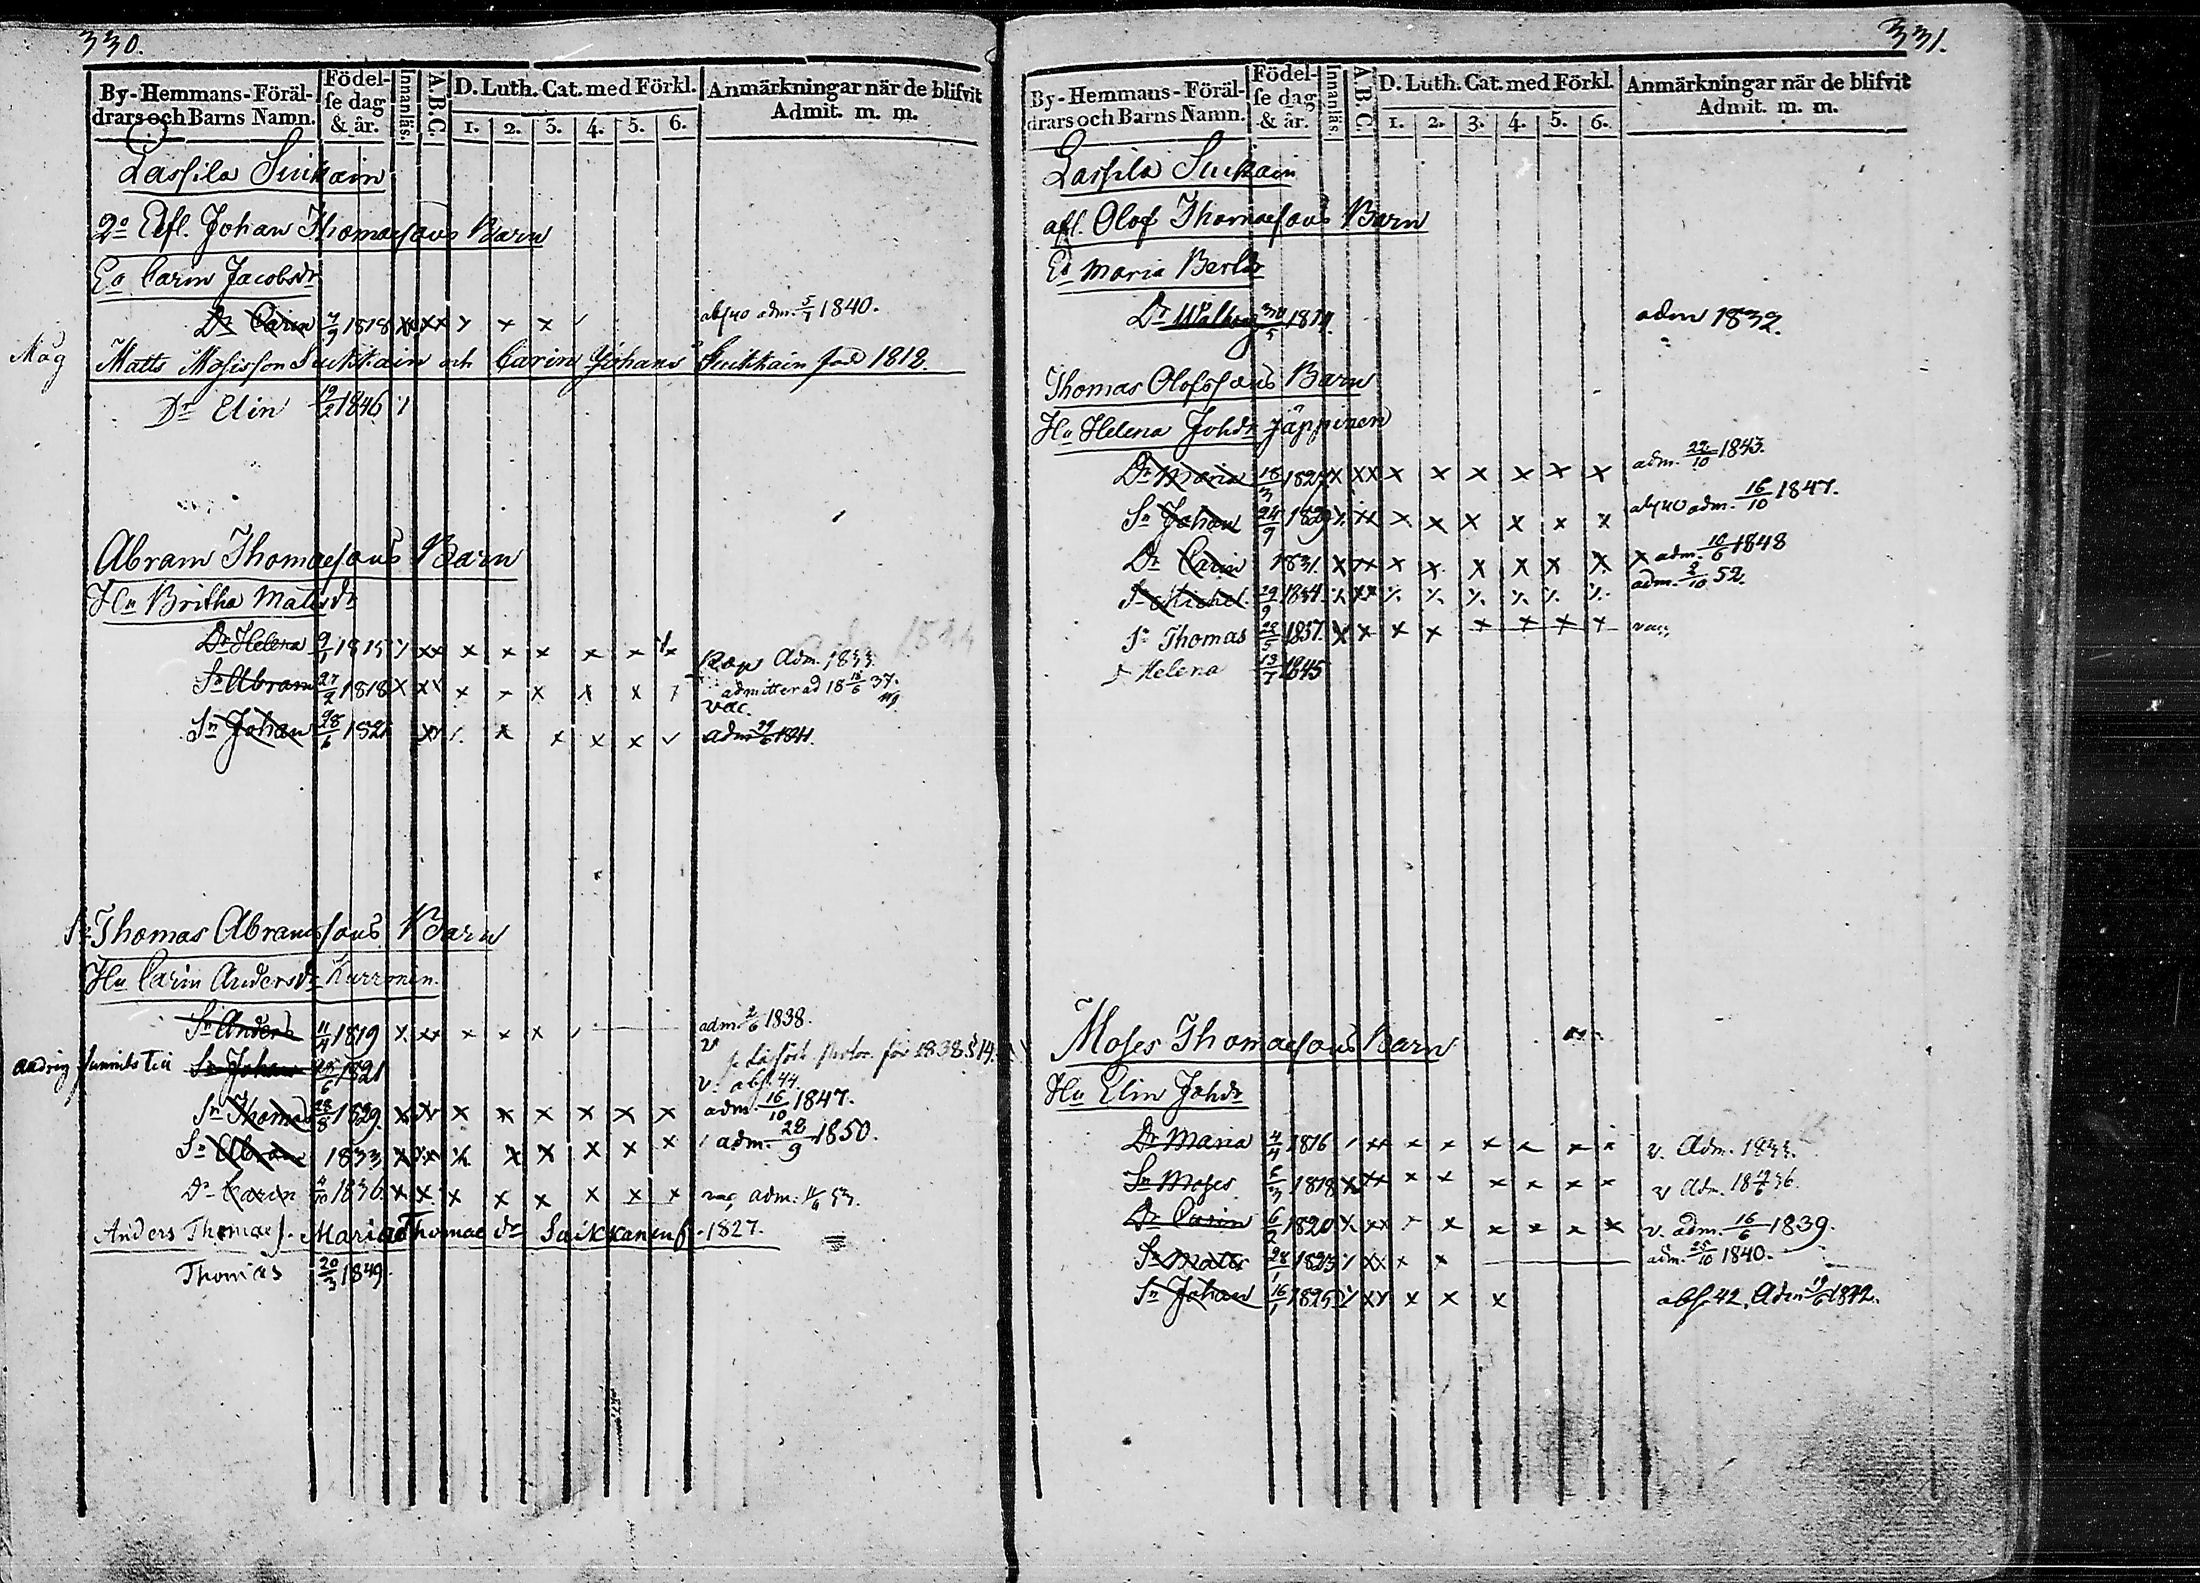 330.
By-Hemmans-Föräl-
drars och Barns Namn.
Födel-
se dag
& år.
Innanläs.
A.B.C.
D. Luth. Cat. med Förkl.
1. 2. 3. 4. 5. 6.
Anmärkningar när de blifvit
Admit. m. m.
Lassila Suikain
2o Afl. Johan Thomaesons Barn
Ea Carin Jacobsdr
Dr Carin 1818 xx xx x x x adm. 5/7 1840.
Måg Matts Mosisson Suikkain och Carin Johans Suikkain föd 1818.
Dr Elin 19/2 1846
Abram Thomaesons Barn
Hu Britha Mattsdr
Dr Helena 9/1 1815 xx x x x x x Adm. 1833.
Sn Abram 27/2 1818 x xx x x x x x admitterad 18 18/6 37.
vac.
Sn Johan 28/6 1821 xx x x x x adm 29/6 1841.
Sn Thomas Abramssons Barn
Hu Carin Andersdr Kurronen.
Sn Anders 11/4 1819 x xx x x x adm. 2/6 1838.
för 1838 § 14.
Sn Johan 25/6 1821
v. abs. 44.
Sn Thomas 28/8 1829. xx xx x x x x x x adm. 16/10 1847.
Sn Abram 1833 xx xx x x x x x x adm. 28/9 1850.
Dr Carin 4/10 1836 x x x x x x x x vac, adm: 53.
Anders Thomaes. Maria Thomae dr Saikkanen f. 1827.
Thomas 20/3 1849.
331.
By-Hemmans-Föräl-
drars och Barns Namn.
Födel-
se dag
& år.
Innanläs.
A.B.C.
D. Luth. Cat. med Förkl.
1. 2. 3. 4. 5. 6.
Anmärkningar när de blifvit
Admit. m. m.
Lassila Suikain
afl. Olof Thomaesons Barn
Ea Maria Bertdr
Dr Walborg 30/5 adm 1832.
Thomas Olofssons Barn
Hu Helena Johdr Jäppinen
Dr Maria 18/3 1827 x xx x x x x x x adm. 22/10 1843.
Sn Johan 24/9 1829 x xx x x x x x x adm. 16/10 1847.
Dr Carin 1831. x xx x x x x x x x adm. 18/6 1848
Sn Michel 29/9 1834. adm. 2/10 52.
Sn Thomas 28/5 1837. x x x x x x x x vac,
Dr Helena 13/7 1845
Moses Thomaesons Barn
Hu Elin Johdr
Dr Maria 4/4 1816 xx x x x x x x v. Adm. 1833.
Sn Moses 1818 x xx x x x x x x v Adm. 36.
Dr Carin 6/2 1820 x xx x x x x x x v. adm. 16/6 1839.
Sn Matts 28/1 1823 xx x x adm. 25/10 1840.
Sn Johan 16/1 1825 xx x x x abs. 42, Adm 19/6 1842.